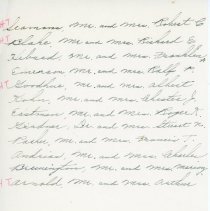 Seamans, Mr. and Mrs. Robert C
HT Blake, Mr. and Mrs. Richard E
Mr. and Mrs. Franklin
Emerson Mr. and Mrs. Ralph
HT Goodhue, Mr. and Mrs. Albert
Mr. and Mrs. Chester J.
Eastman, Mr. and Mrs. Roger K.
Gardner, Dr. and Mrs. Stuart N.
Mr. and Mrs. Francis T.
Andreas, Mr. and Mrs. Charles
Mr. and Mrs.
HT Arnold, Mr. and Mrs. Arthur